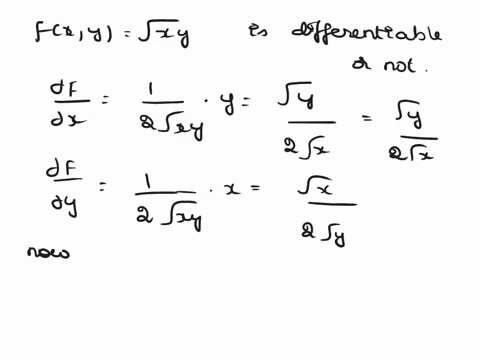 f(x, y) = √xy is differentiable
or not.
∂F/∂x = 1/(2√xy) · y = √y/(2√x) = √y/(2√x)
∂F/∂y = 1/(2√xy) · x = √x/(2√y)
now